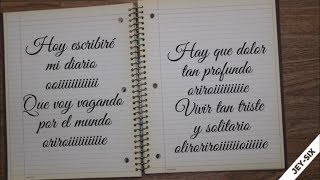 Hoy escribiré
mi diario
ooiiiiiiiiiii
Que voy vagando
por el mundo
oriroiiiiiiiiiie
Hay que dolor
tan profundo
oriroiiiiiiiiiie
Vivir tan triste
y solitario
oliroriroiiiiiioiiiiiie
JEY-SIX